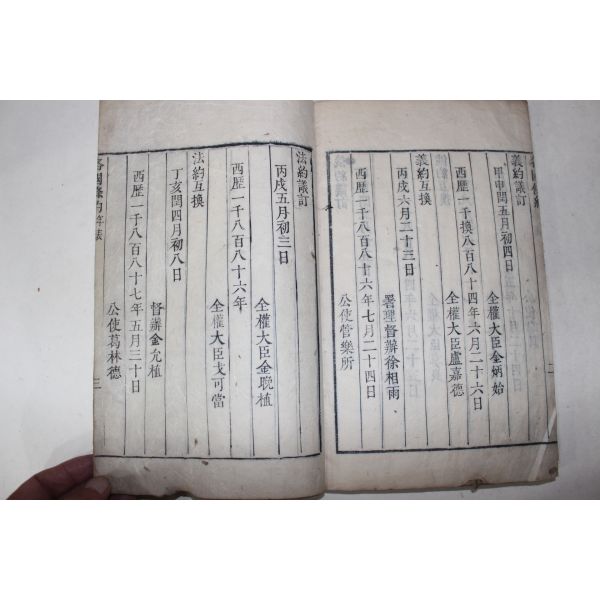 義約議訂
甲申閏五月初四日
全權大臣金炳始
西歷一千換八百八十四年六月二十六日
全權大臣盧嘉德
義約互換
丙戌六月二十三日
署理督辦徐相雨
西歷一千八百八十六年七月二十四日
公使管樂所
二
法約議訂
丙戌五月初三日
全權大臣金晚植
西歷一千八百八十六年
全權大臣戈可當
法約互換
丁亥閏四月初八日
督辦金允植
西歷一千八百八十七年五月三十日
公使葛林德
各國條約
三